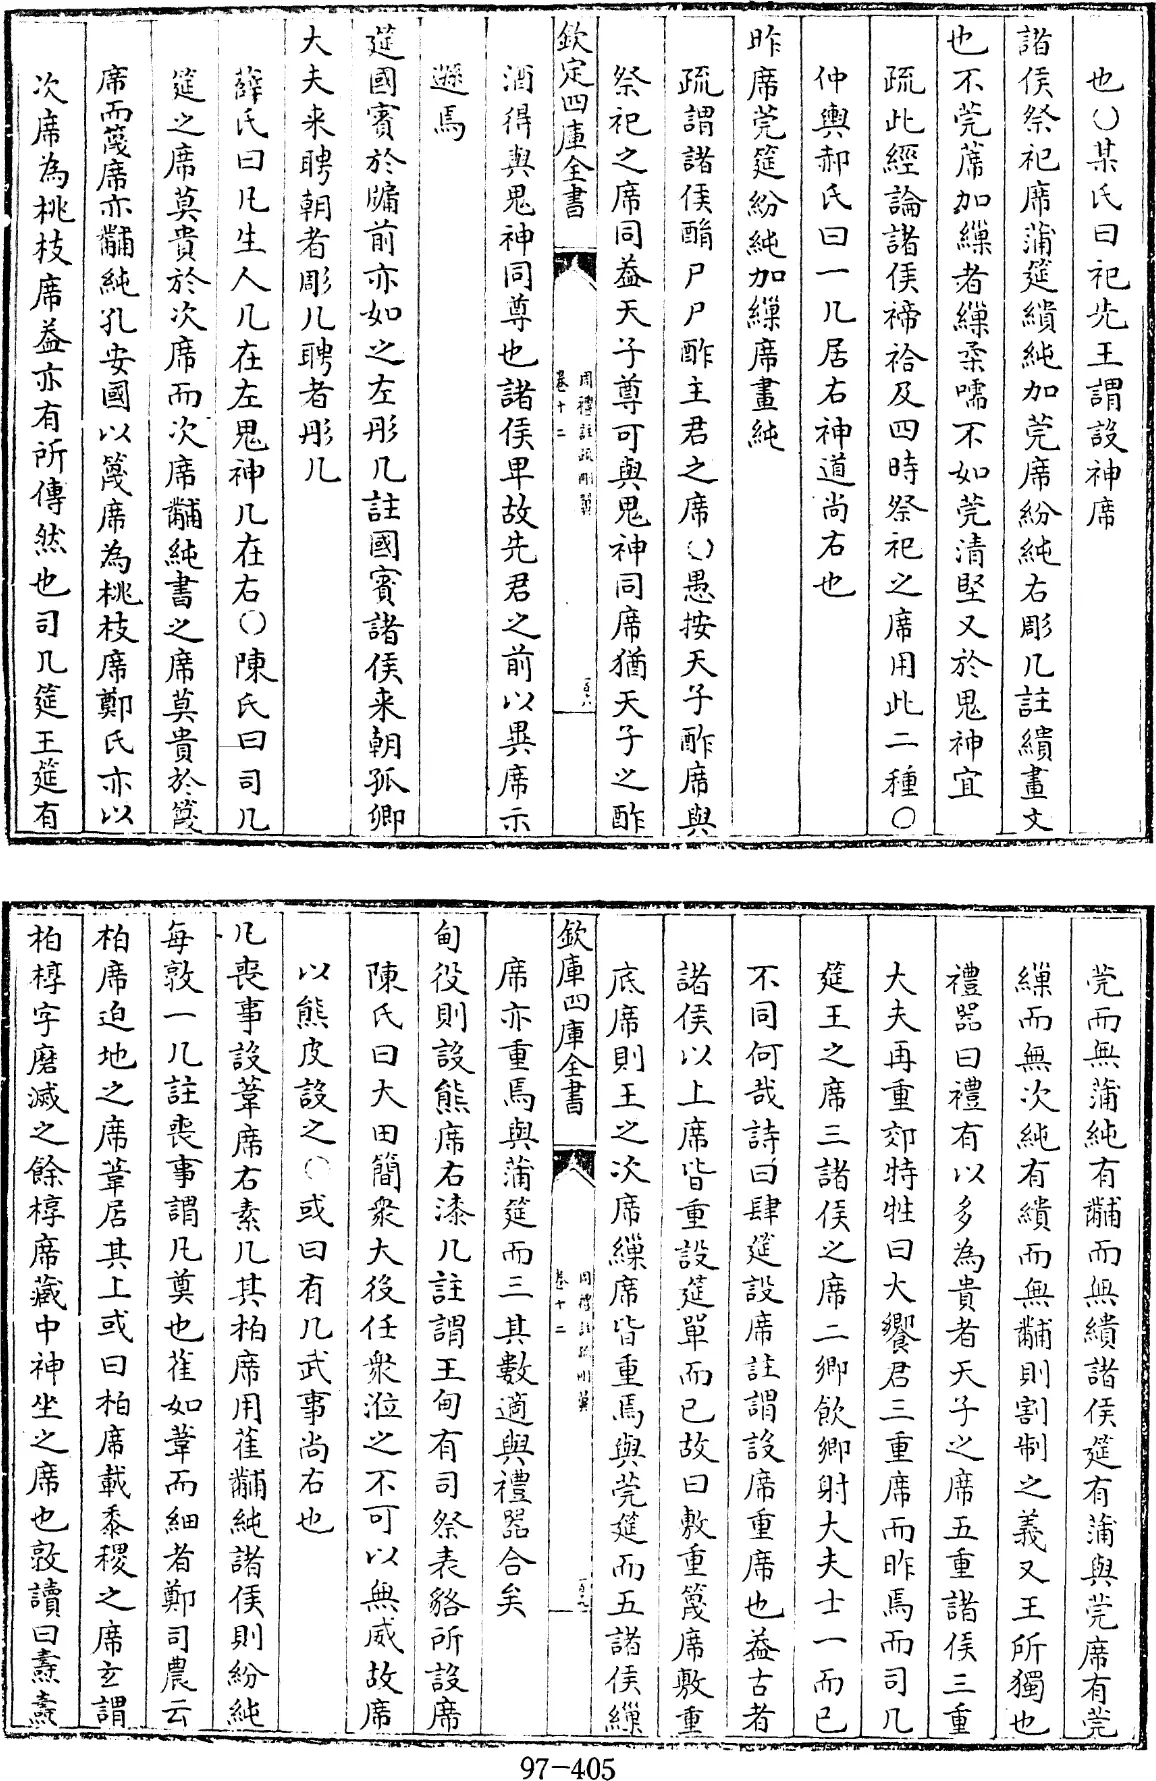 也〇某氏曰祀先王謂設神席
諸侯祭祀席蒲筵繢純加莞席紛純右彫几註繢畫文
也不莞蓆加繅者繅柔嚅不如莞清堅又於鬼神宜
疏此經論諸侯禘祫及四時祭祀之席用此二種〇
仲輿郝氏曰一几居右神道尚右也
昨席莞筵紛純加繅席畫純
疏謂諸侯酳尸尸酢主君之席〇愚按天子酢席與
祭祀之席同蓋天子尊可與鬼神同席猶天子之酢
欽定四庫全書
周禮註疏刪翼
卷十二
酒得與鬼神同尊也諸侯卑故先君之前以異席示
遜焉
筵國賓於牖前亦如之左彤几註國賓諸侯来朝孤卿
大夫来聘朝者彫几聘者彤几
薛氏曰凡生人几在左鬼神几在右〇陳氏曰司几
筵之席莫貴於次席而次席黼純書之席莫貴於篾
席而篾席亦黼純孔安國以篾席為桃枝席鄭氏亦以
次席為桃枝席蓋亦有所傳然也司几筵王筵有
莞而無蒲純有黼而無繢諸侯筵有蒲與莞席有莞
繅而無次純有繢而無黼則割制之義又王所獨也
禮器曰禮有以多為貴者天子之席五重諸侯三重
大夫再重郊特牲曰大饗君三重席而昨焉而司几
筵王之席三諸侯之席二卿飲卿射大夫士一而已
不同何哉詩曰肆筵設席註謂設席重席也蓋古者
諸侯以上席皆重設筵單而已故曰敷重篾席敷重
底席則王之次席繅席皆重焉與莞筵而五諸侯繅
欽定四庫全書
周禮註疏刪翼
卷十二
席亦重焉與蒲筵而三其數適與禮器合矣
甸役則設熊席右漆几註謂王甸有司祭表貉所設席
陳氏曰大田簡衆大役任衆涖之不可以無威故席
以熊皮設之〇或曰有几武事尚右也
凡喪事設葦席右素几其柏席用萑黼純諸侯則紛純
每敦一几註喪事謂凡奠也萑如葦而細者鄭司農云
柏席迫地之席葦居其上或曰柏席載黍稷之席玄謂
柏椁字磨滅之餘椁席藏中神坐之席也敦讀曰燾燾
97-405